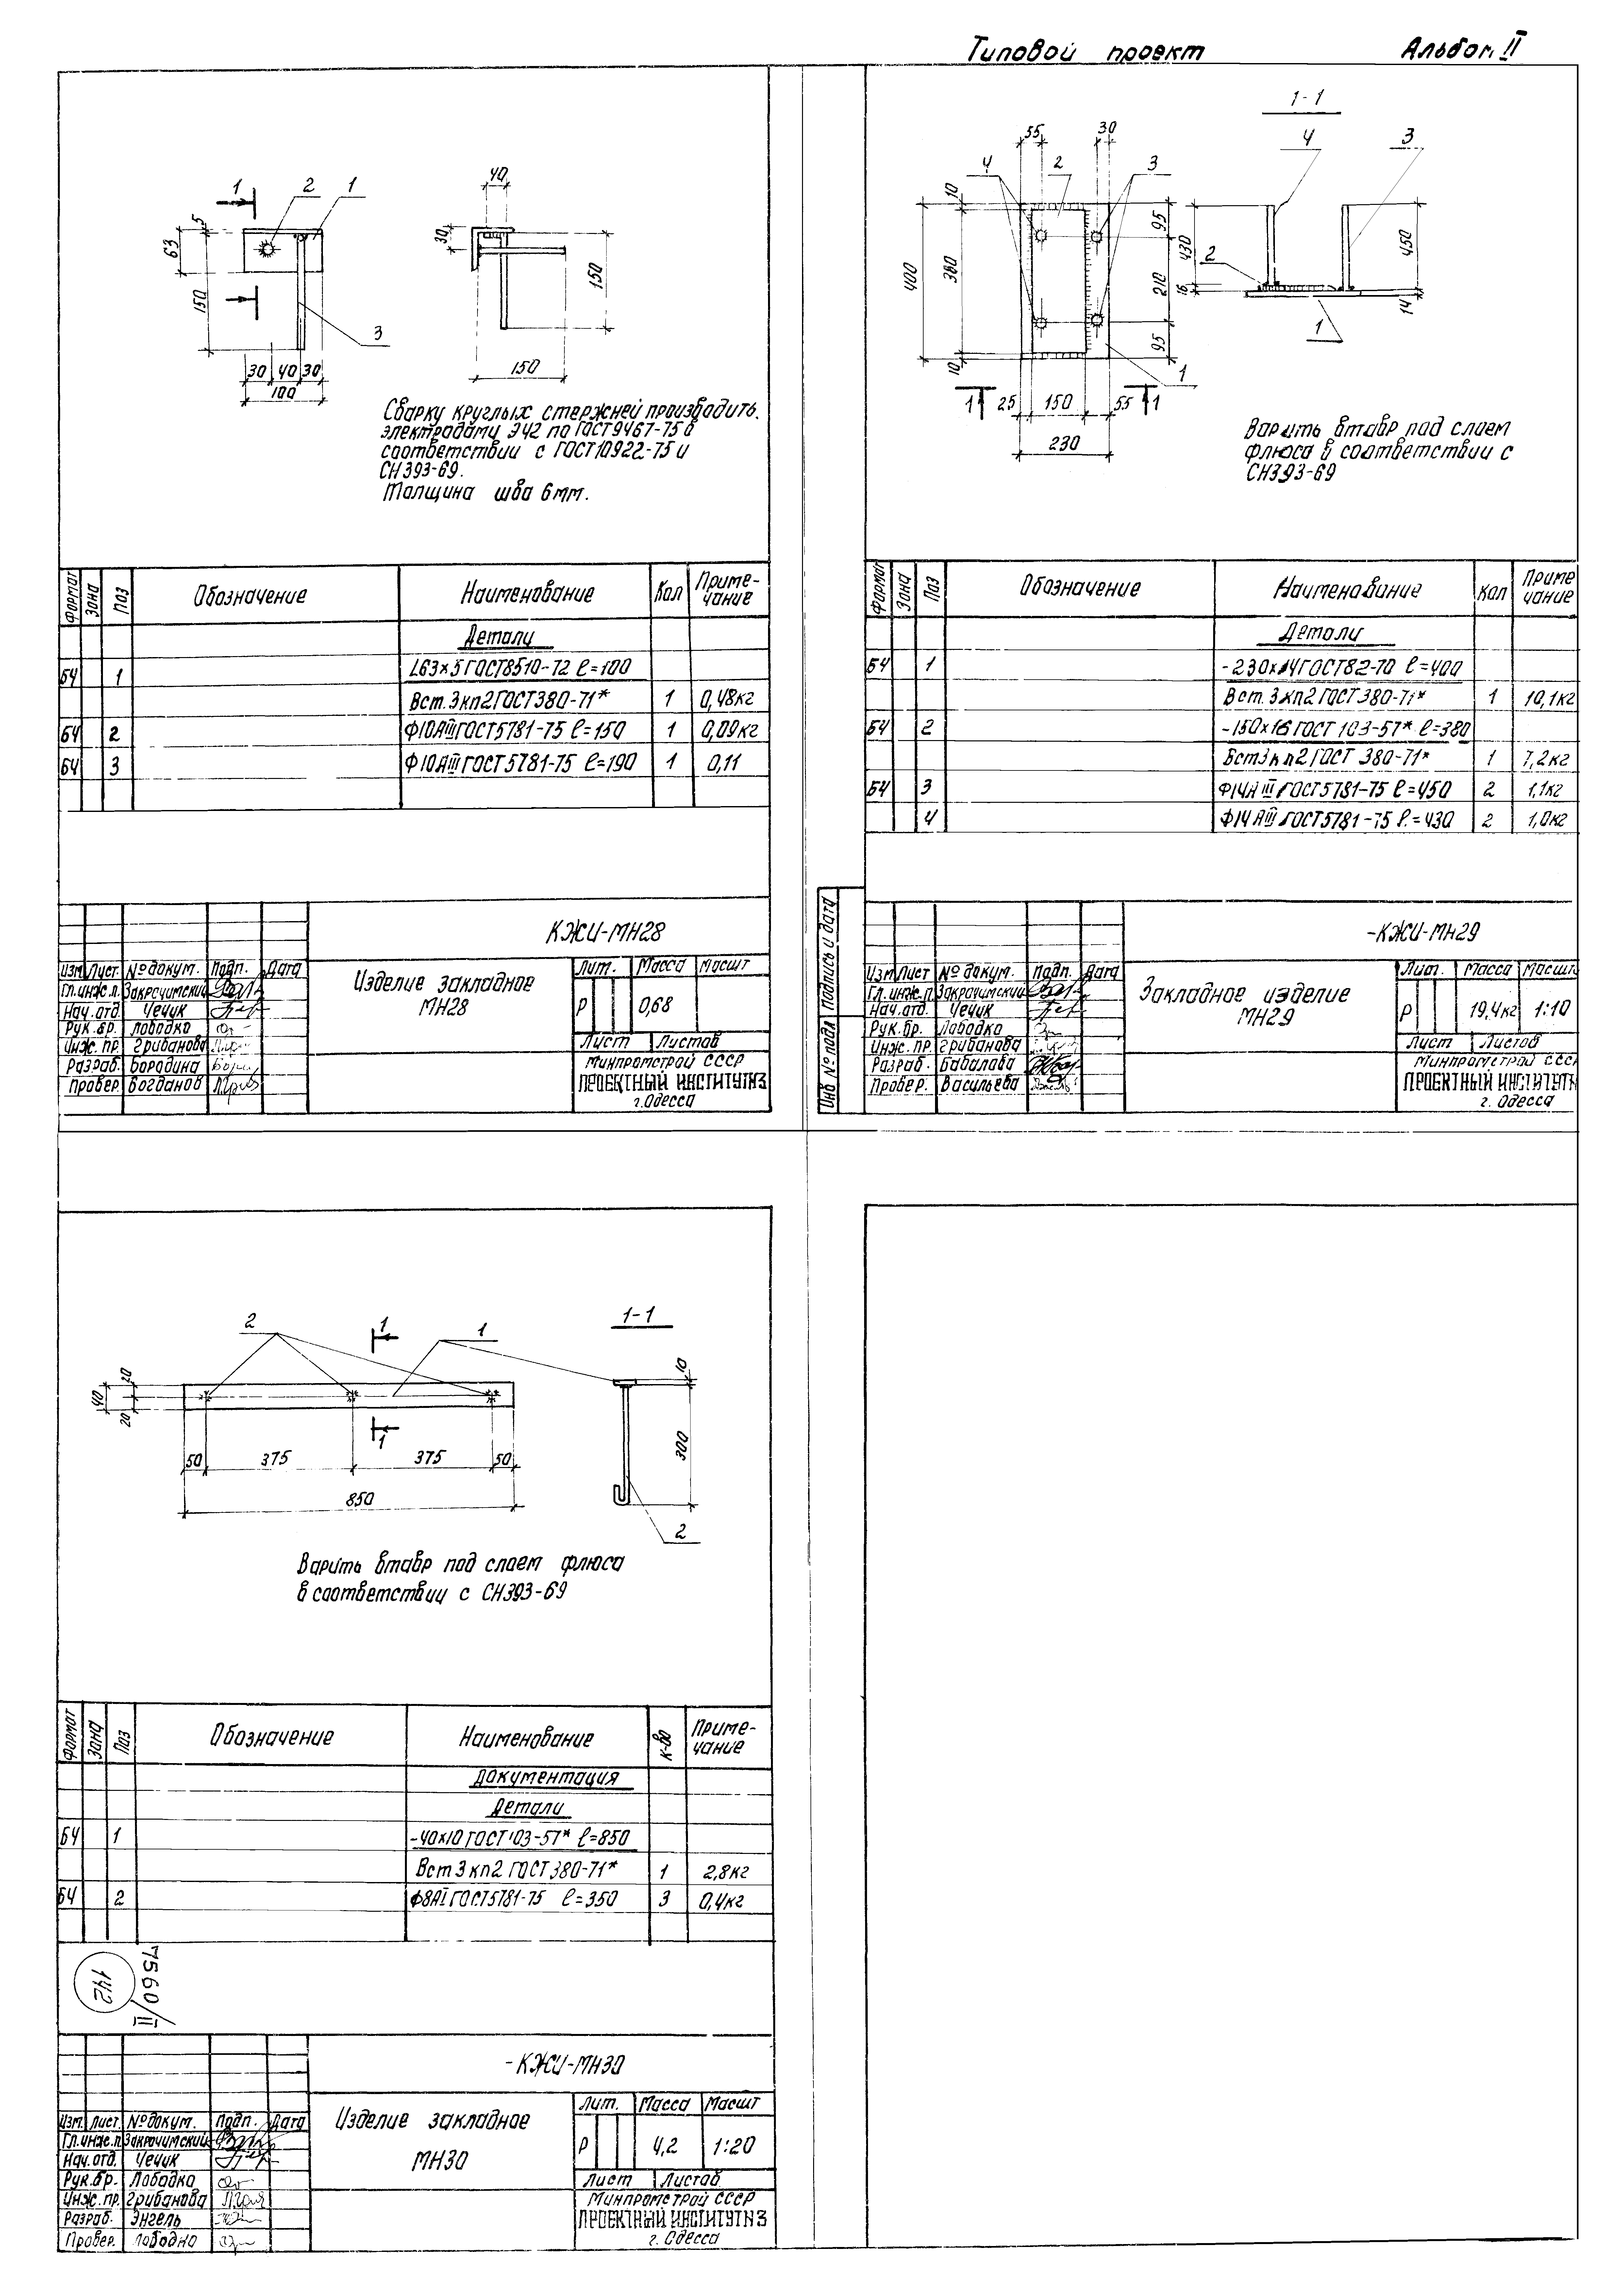 Типовой проект Альбом II
1 2 1
5
63
150
3
30 40 30
100
40
30
150
150
Сварку круглых стержней производить
электродами Э42 по ГОСТ9467-75 в
соответствии с ГОСТ10922-75 и
СН393-69.
Толщина шва 6мм.
Формат Зона Поз Обозначение Наименование Кол Приме-
чание
Детали
БЧ 1 L63×5 ГОСТ8510-72 ℓ=100
Вст.3кп2 ГОСТ380-71* 1 0,48кг
БЧ 2 Ф10АIII ГОСТ5781-75 ℓ=150 1 0,09кг
БЧ 3 Ф10АIII ГОСТ5781-75 ℓ=190 1 0,11
КЖИ-МН28
Изм Лист. № докум. Подп. Дата
Гл.инж.п. Закрочимский
Нач.отд. Чечик
Рук.бр. Лободко
Инж.пр. Грибанова
Разраб. Бородина
Провер. Богданов
Изделие закладное
МН28
Лит. Масса Масшт
Р 0,68
Лист Листов
Минпромстрой СССР
ПРОЕКТНЫЙ ИНСТИТУТ№3
г.Одесса
1-1
55 30
4 2 3
10
400
380
10
95
210
95
1
1 25 150 55 1
230
4 3
430
16
2
450
14
1
Варить втавр под слоем
флюса в соответствии с
СН393-69
Формат Зона Поз Обозначение Наименование Кол Приме
чание
Детали
БЧ 1 -230×14 ГОСТ82-70 ℓ=400
Вст.3кп2 ГОСТ380-71* 1 10,1кг
БЧ 2 -150×16 ГОСТ 103-57* ℓ=380
Вст3кп2 ГОСТ 380-71* 1 7,2кг
БЧ 3 Ф14АIII ГОСТ5781-75 ℓ=450 2 1,1кг
4 Ф14АIII ГОСТ5781-75 ℓ=430 2 1,0кг
Инв № подл Подпись и дата
-КЖИ-МН29
Изм Лист № докум. Подп. Дата
Гл.инж.п. Закрочимский
Нач.отд. Чечик
Рук.бр. Лободко
Инж.пр. Грибанова
Разраб. Бабалова
Провер. Васильева
Закладное изделие
МН29
Лит. Масса Масшт
Р 19,4кг 1:10
Лист Листов
Минпромстрой СССР
ПРОЕКТНЫЙ ИНСТИТУТ№
г. Одесса
2 1 1 1-1
40
20
20
1
50 375 375 50
850
10
300
2
Варить втавр под слоем флюса
в соответствии с СН393-69
Формат Зона Поз Обозначение Наименование к-во Приме-
чание
Документация
Детали
БЧ 1 -40×10 ГОСТ 103-57* ℓ=850
Вст3кп2 ГОСТ380-71* 1 2,8кг
БЧ 2 Ф8АI ГОСТ5781-75 ℓ=350 3 0,4кг
142
7560/II
-КЖИ-МН30
Изм. Лист. № докум. Подп. Дата
Гл.инж.п. Закрочимский
Нач.отд. Чечик
Рук.бр. Лободко
Инж.пр. Грибанова
Разраб. Энгель
Провер. Лободко
Изделие закладное
МН30
Лит. Масса Масшт
Р 4,2 1:20
Лист Листов
Минпромстрой СССР
ПРОЕКТНЫЙ ИНСТИТУТ№3
г. Одесса